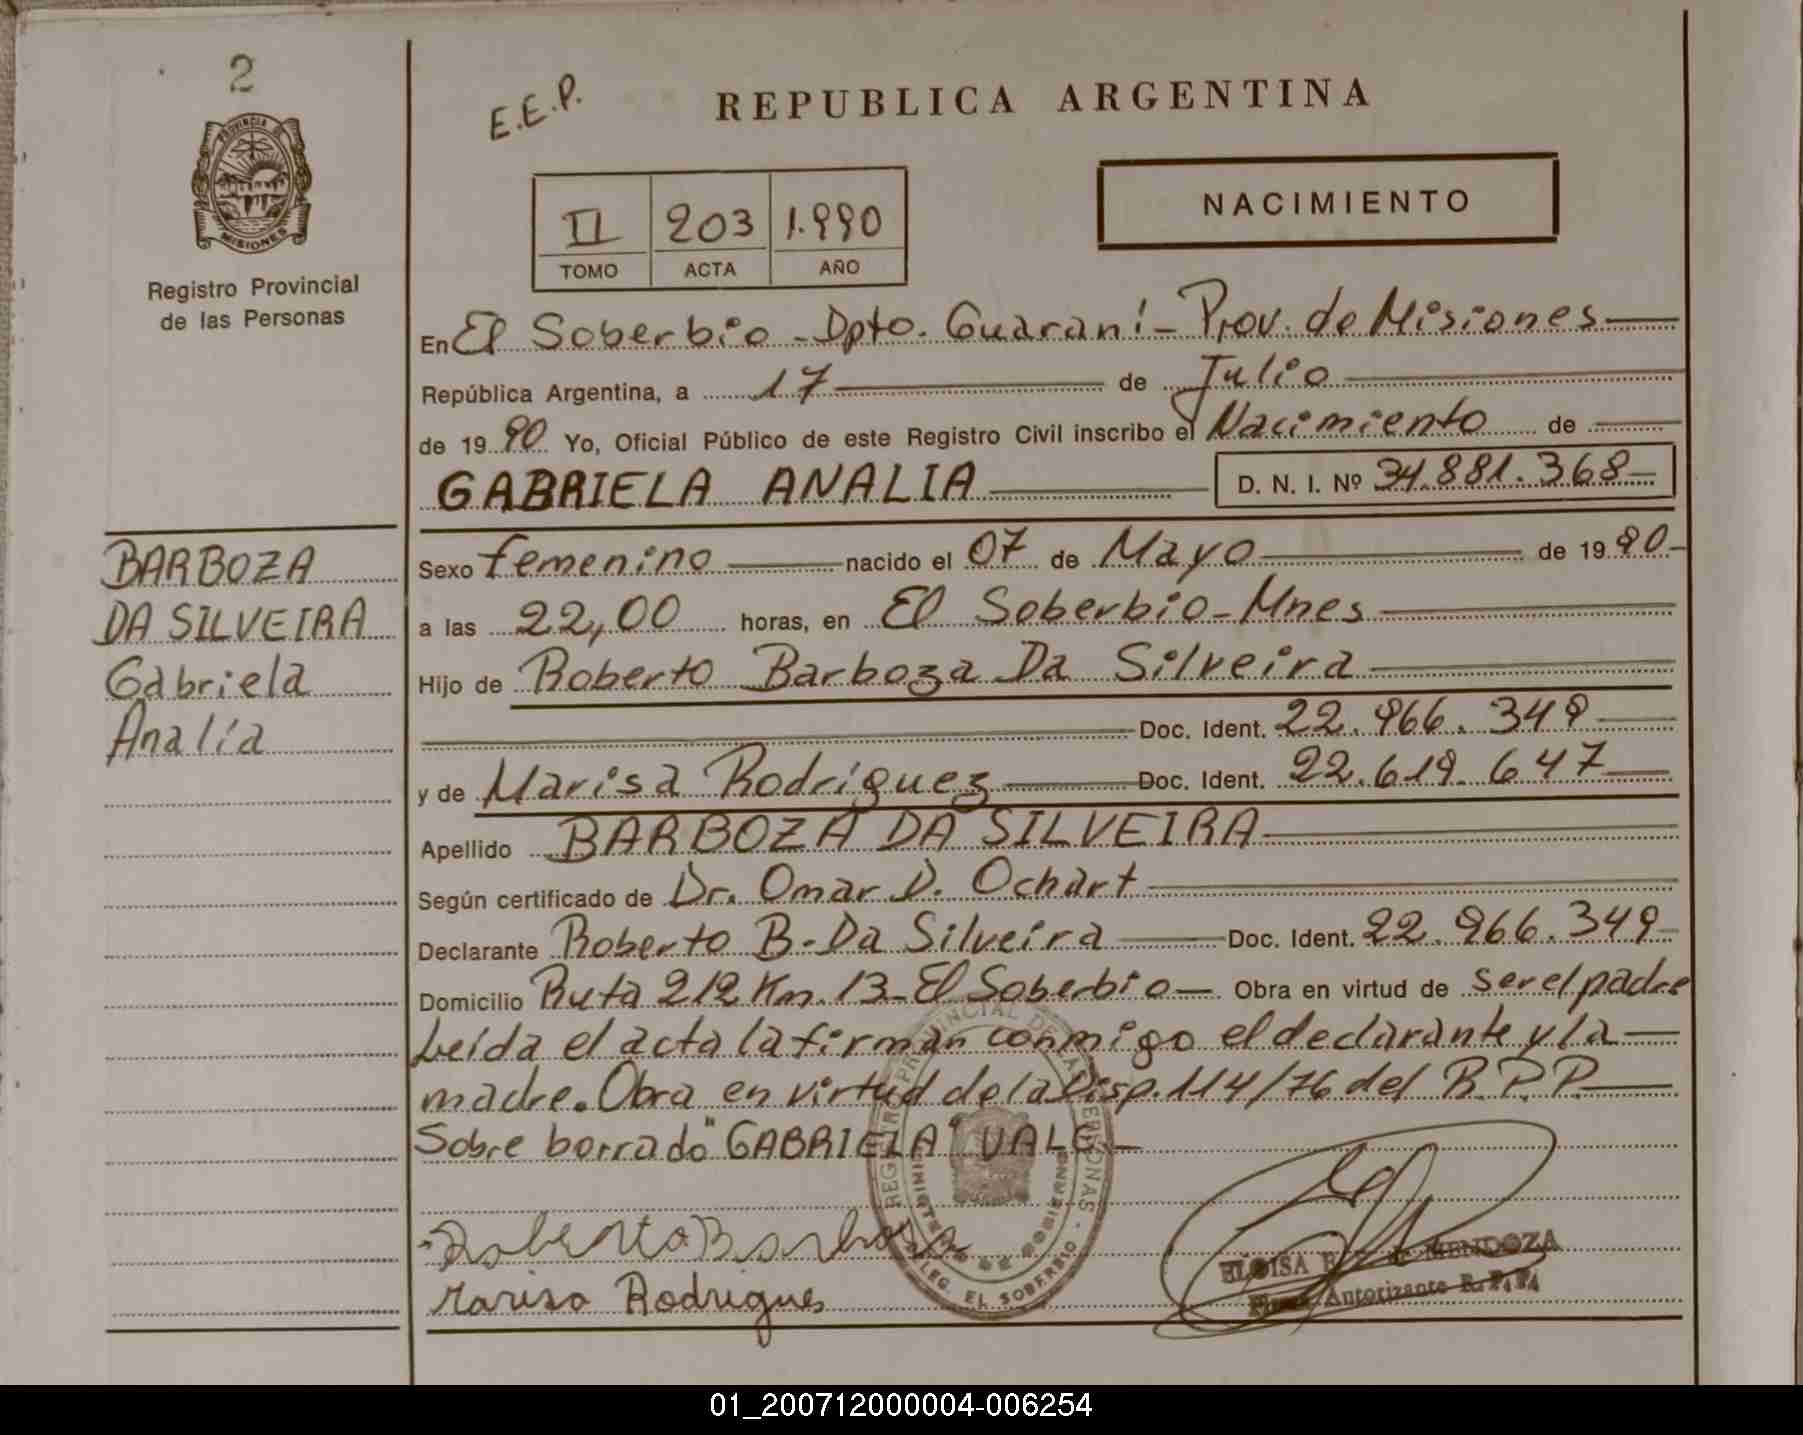 2
E.E.P.
REPUBLICA ARGENTINA
PROVINCIA DE
MISIONES
Registro Provincial
de las Personas
II 203 1.990
TOMO ACTA AÑO
NACIMIENTO
En El Soberbio - Dpto. Guaraní - Prov. de Misiones
República Argentina, a 17 de Julio
de 1990 Yo, Oficial Público de este Registro Civil inscribo el Nacimiento de
GABRIELA ANALIA D. N. I. Nº 34.881.368
BARBOZA
DA SILVEIRA
Gabriela
Analía
Sexo femenino nacido el 07 de Mayo de 1990.-
a las 22,00 horas, en El Soberbio - Mnes
Hijo de Roberto Barboza Da Silveira
Doc. Ident. 22.966.349
y de Marisa Rodríguez Doc. Ident. 22.619.647
Apellido BARBOZA DA SILVEIRA
Según certificado de Dr. Omar D. Ochart
Declarante Roberto B. Da Silveira Doc. Ident. 22.966.349
Domicilio Ruta 212 Km. 13 - El Soberbio - Obra en virtud de ser el padre
Leída el acta la firman conmigo el declarante y la
madre. Obra en virtud de la Disp. 114/76 del R.P.P.
Sobre borrado "GABRIELA" VALE -
REGISTRO PROVINCIAL DE LAS PERSONAS
MINISTERIO GOBIERNO
DELEG. EL SOBERBIO
Roberto Barboza
Marisa Rodrigues
ELOISA de MENDOZA
Autorizante R. P. P.
01_200712000004-006254